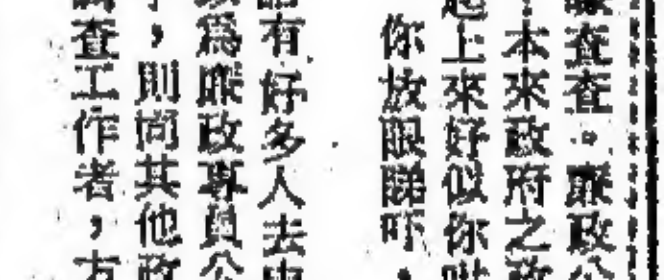 查查。廉政公
本來政府之
上來好似你
你放眼睇吓，
有好多人去
為廉政專員公
，則尚其他政
查工作者，有